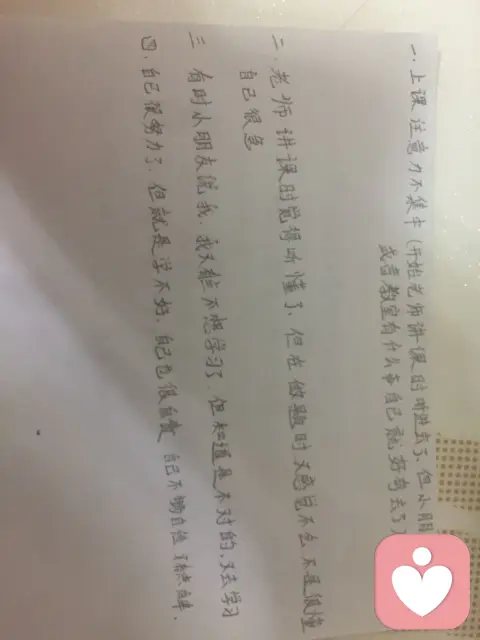 一. 上课注意力不集中 (开始老师讲课时听进去了, 但小朋
或者教室有什么事自己就好奇去了)
二. 老师讲课时觉得听懂了, 但在做题时又感觉不会 不是很懂
自己很急
三 有时小朋友说我, 我又能不想学习了, 但知道是不对的, 又去学习
四. 自己很努力了, 但就是学不好, 自己也很自责 自己不够自信 有点自卑.